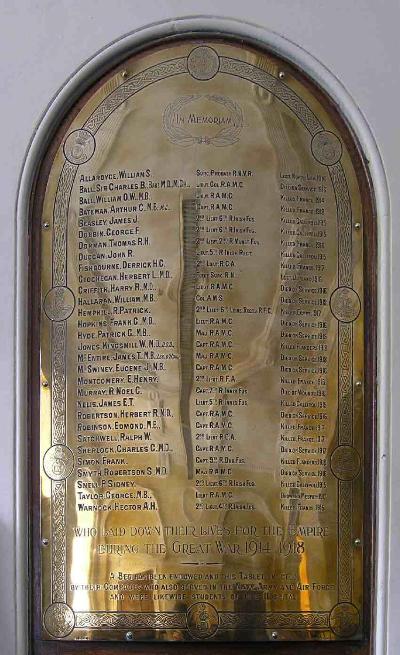 IN MEMORIAM
ALLARDYCE, WILLIAM S. SURG. PROBATR. R.N.V.R. LOST NORTH SEA 1916
BALL, SIR CHARLES B. BART M.D., M.CH. LIEUT. COL. R.A.M.C. DIED ON SERVICE 1916
BALL, WILLIAM O.W., M.B. LIEUT. R.A.M.C. KILLED FRANCE 1914
BATEMAN, ARTHUR C., M.B. CAPT. R.A.M.C. KILLED FRANCE 1918
BEASLEY, JAMES J. 2ND LIEUT. 6TH R. IRISH FUS. KILLED GALLIPOLI 1915
DOBBIN, GEORGE F. 2ND LIEUT. 6TH R. IRISH FUS. KILLED GALLIPOLI 1915
DORMAN, THOMAS R.H. 2ND LIEUT. 2ND R. MUNST. FUS. KILLED FRANCE 1916
DUGGAN, JOHN R. LIEUT. 5TH R. IRISH REGT. KILLED GALLIPOLI 1915
FISHBOURNE, DERRICK H.C. 2ND LIEUT. R.G.A. KILLED FRANCE 1917
GEOGHEGAN, HERBERT L., M.D. FLEET SURG. R.N.
GRIFFITH, HARRY R., M.D. LIEUT. R.A.M.C. DIED ON SERVICE
HALLARAN, WILLIAM, M.B. COL. A.M.S. DIED ON SERVICE
HEMPHILL, R. PATRICK. R.F.C. KILLED EGYPT 1917
HOPKINS, FRANK G., M.D. LIEUT. R.A.M.C. DIED ON SERVICE
HYDE, PATRICK G., M.B. MAJ. R.A.M.C. DIED ON SERVICE
JONES, KINGSMILL W., M.D. CAPT. R.A.M.C. KILLED FLANDERS 1918
MCENTIRE, JAMES T., M.B. MAJ. R.A.M.C. DIED ON SERVICE
MCSWINEY, EUGENE J., M.B. CAPT. R.A.M.C. DIED ON SERVICE
MONTGOMERY, E. HENRY. 2ND LIEUT. R.F.A. KILLED FRANCE
MURRAY, R. NOEL C. CAPT. 7TH R. INNIS. FUS. DIED OF WOUNDS 1916
NELIS, JAMES E.T. LIEUT. 5TH R. INNIS. FUS.
ROBERTSON, HERBERT R., M.D. CAPT. R.A.M.C. DIED ON SERVICE
ROBINSON, EDMOND, M.B. CAPT. R.A.M.C. KILLED FRANCE 1917
SATCHWELL, RALPH W. 2ND LIEUT. R.G.A. KILLED FRANCE 1917
SHERLOCK, CHARLES G., M.D. CAPT. R.A.M.C. DIED ON SERVICE
SIMON, FRANK. CAPT. 9TH R. DUB. FUS. KILLED FLANDERS
SMYTH, ROBERTSON S., M.D. MAJ. R.A.M.C. DIED ON SERVICE
SNELL, P. SIDNEY. 2ND LIEUT. 6TH R. IRISH FUS. KILLED GALLIPOLI 1915
TAYLOR, GEORGE, M.B. LIEUT. R.A.M.C.
WARNOCK, HECTOR A.H. 2ND LIEUT. KILLED FRANCE
WHO LAID DOWN THEIR LIVES FOR THE EMPIRE
DURING THE GREAT WAR 1914-1918
A BED HAS BEEN ENDOWED AND THIS TABLET ERECTED
BY THEIR COMRADES WHO ALSO SERVED IN THE NAVY, ARMY AND AIR FORCE
AND WERE LIKEWISE STUDENTS OF THIS HOSPITAL